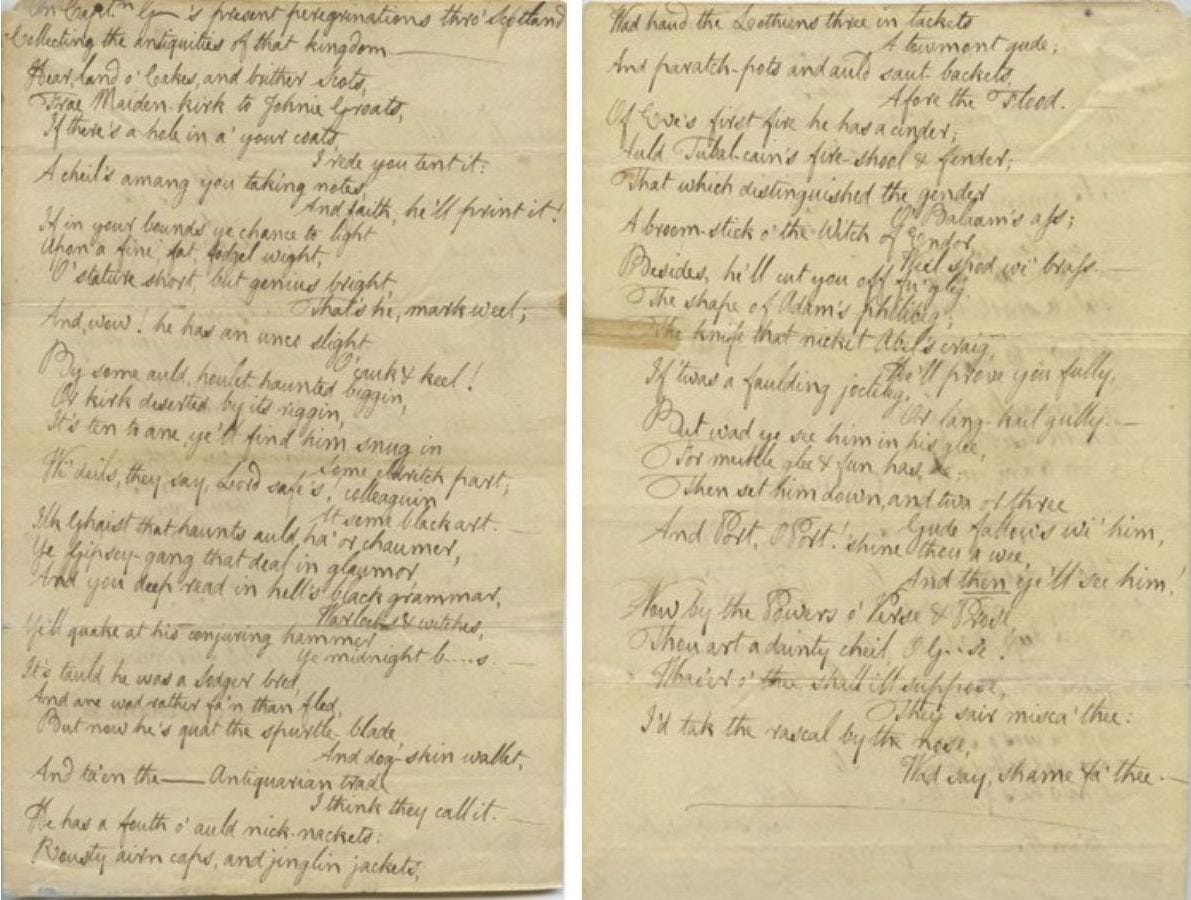 On Captn. G—'s present peregrinations thro' Scotland
Collecting the antiquities of that kingdom —
Hear, land o' Cakes, and brither Scots,
Frae Maiden-kirk to Johnie Groats,
If there's a hole in a' your coats,
I rede you tent it:
A cheil's amang you taking notes,
And faith, he'll prent it!
If in your bounds ye chance to light
Upon a fine, fat, fodgel wight,
O' stature short, but genius bright,
That's he, mark weel;
And, wow! he has an unco slight
O' cauk & keel!
By some auld, houlet haunted biggin,
Or kirk deserted by its riggin,
It's ten to ane ye'll find him snug in
Some eldritch part;
Wi' deils, they say, Lord safe's! colleaguin
At some black art. —
Ilk Ghaist that haunts auld ha' or chaumer,
Ye Gipsey-gang that deal in glaumor,
And you deep read in hell's black grammar,
Warlocks & witches,
Ye'll quake at his conjuring hammer,
Ye midnight b....s. —
It's tauld he was a sodger bred,
And ane wad rather fa'n than fled,
But now he's quat the spurtle-blade,
And dog-skin wallet,
And ta'en the — Antiquarian trade
I think they call it. —
He has a fouth o' auld nick-nackets:
Rousty airn caps, and jinglin jackets,
Wad haud the Lothians three in tackets
A towmont gude;
And paratch-pots and auld saut-backets,
Afore the Flood.
Of Eve's first fire he has a cinder;
Auld Tubal-cain's fire-shool & fender;
That which distinguished the gender
O' Balaam's ass;
A broom-stick o' the Witch of Endor,
Weel shod wi' brass. —
Besides, he'll cut you off fu' gleg
The shape of Adam's philibeg;
The knife that nicket Abel's craig,
He'll prove you fully,
If 'twas a faulding jocteleg,
Or lang-kail gully. —
But wad ye see him in his glee,
For meikle glee & fun has he;
Then set him down, and twa or three
Gude fallows wi' him,
And Port, O Port! shine thou a wee,
And then ye'll see him!
Now, by the Powers o' Verse & Prose!
Thou art a dainty cheil, O G..se!
Whae'er o' thee shall ill suppose,
They sair misca' thee:
I'd tak the rascal by the nose,
Wad say, shame fa' thee. —